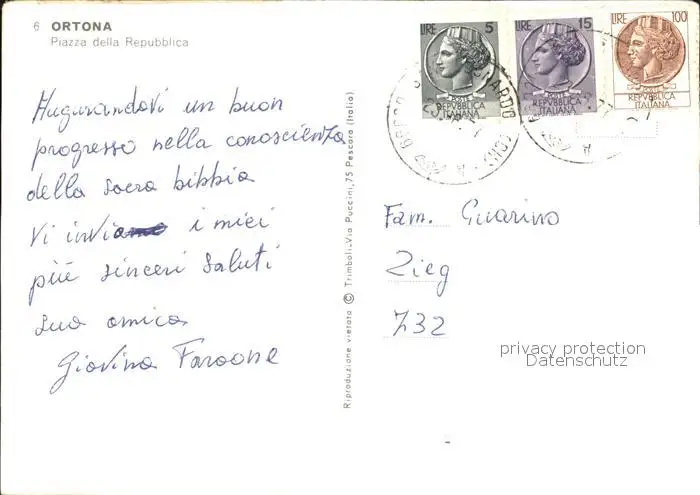 6 ORTONA
Piazza della Repubblica
LIRE 5
POSTE
REPVBBLICA
ITALIANA
LIRE 15
POSTE
REPVBBLICA
ITALIANA
LIRE 100
REPVBBLICA
ITALIANA
Augurandovi un buon
progresso nella conoscienza
della sacra bibbia
Vi invi i miei
più sinceri saluti
sua amica
Giovina Faraone
Riproduzione vietata © Trimboli-Via Puccini, 75 Pescara (Italia)
Fam. Guarino
Zieg
732
privacy protection
Datenschutz